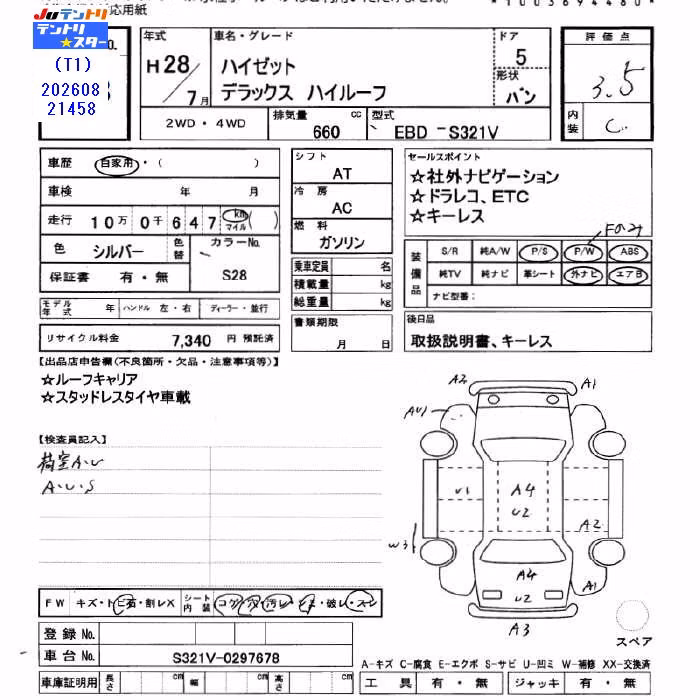 JUテントリ
テントリ
★スター
(T1)
202608
21458
応用紙
*1003694480*
年式
H28/7月
車名・グレード
ハイゼット
デラックス ハイルーフ
ドア
5
形状
バン
評価点
3.5
内装
C
2WD・4WD
排気量
660
cc
型式
EBD-S321V
車歴
自家用・( )
車検 年 月
走行 10万0千647 km マイル( )
色 シルバー 色替
カラーNo.
S28
保証書 有・無
モデル年式 年 ハンドル 左・右 ディーラー・並行
リサイクル料金 7,340 円 預託済
シフト
AT
冷房
AC
燃料
ガソリン
乗車定員 名
積載量 kg
総重量 kg
書類期限
月 日
セールスポイント
☆社外ナビゲーション
☆ドラレコ、ETC
☆キーレス
Fのみ
装備品
S/R 純A/W P/S P/W ABS
純TV 純ナビ 革シート 外ナビ エアB
ナビ型番:
後日品
取扱説明書、キーレス
【出品店申告欄(不良箇所・欠品・注意事項等)】
☆ルーフキャリア
☆スタッドレスタイヤ車載
【検査員記入】
荷室A・U
A・U・S
A2
A1
AU1
U1
A4
U2
A2
W3
A4
U2
A1
A3
スペア
FW キズ・ト石・割レX シート内装 コゲ・穴・汚レ・シミ・破レ・スレ
登録No.
車台No. S321V-0297678
車庫証明用 長さ cm 幅 cm 高さ cm
A-キズ C-腐食 E-エクボ S-サビ U-凹ミ W-補修 XX-交換済
工具 有・無 ジャッキ 有・無